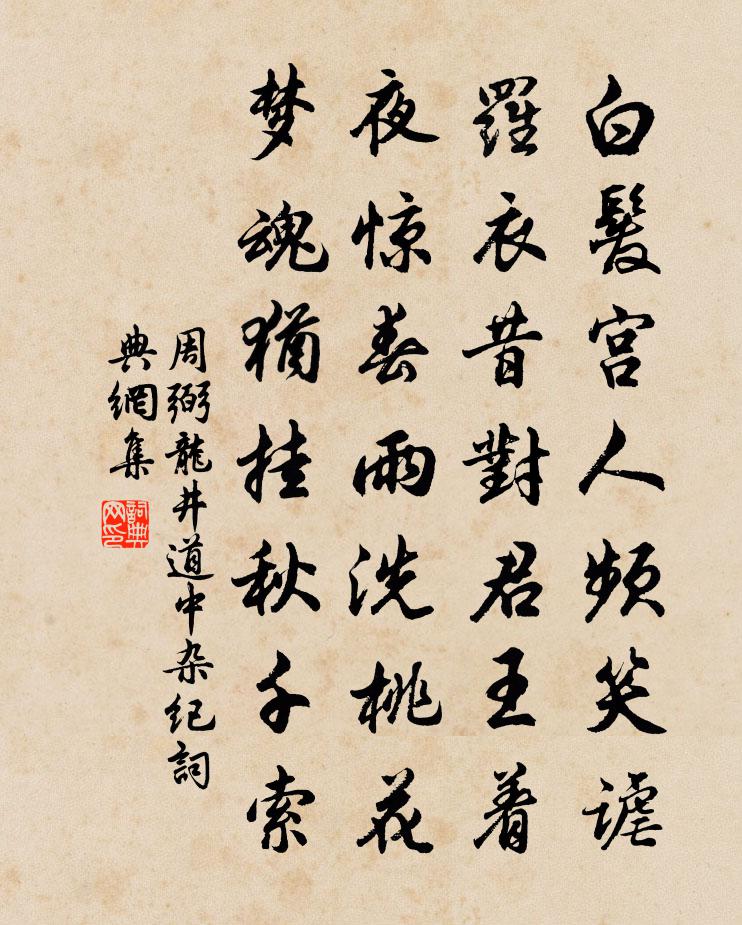 白髮宫人频笑謔
羅衣昔對君王着
夜惊春雨洗桃花
梦魂猶挂秋千索
周弼龍井道中杂纪詞
典網集
詞典网印